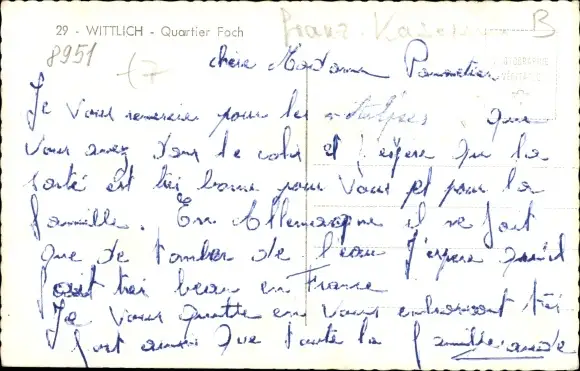 29 - WITTLICH - Quartier Foch
8951
B
17
chère Madame
Je vous remercie pour les que
vous avez dans le colis et j'espère que la
santé est très bonne pour vous et pour la
famille. En Allemagne il ne fait
que de tomber de l'eau j'espère qu'il
fait très beau en France
Je vous quitte en vous embrassant très
fort ainsi que toute la famille